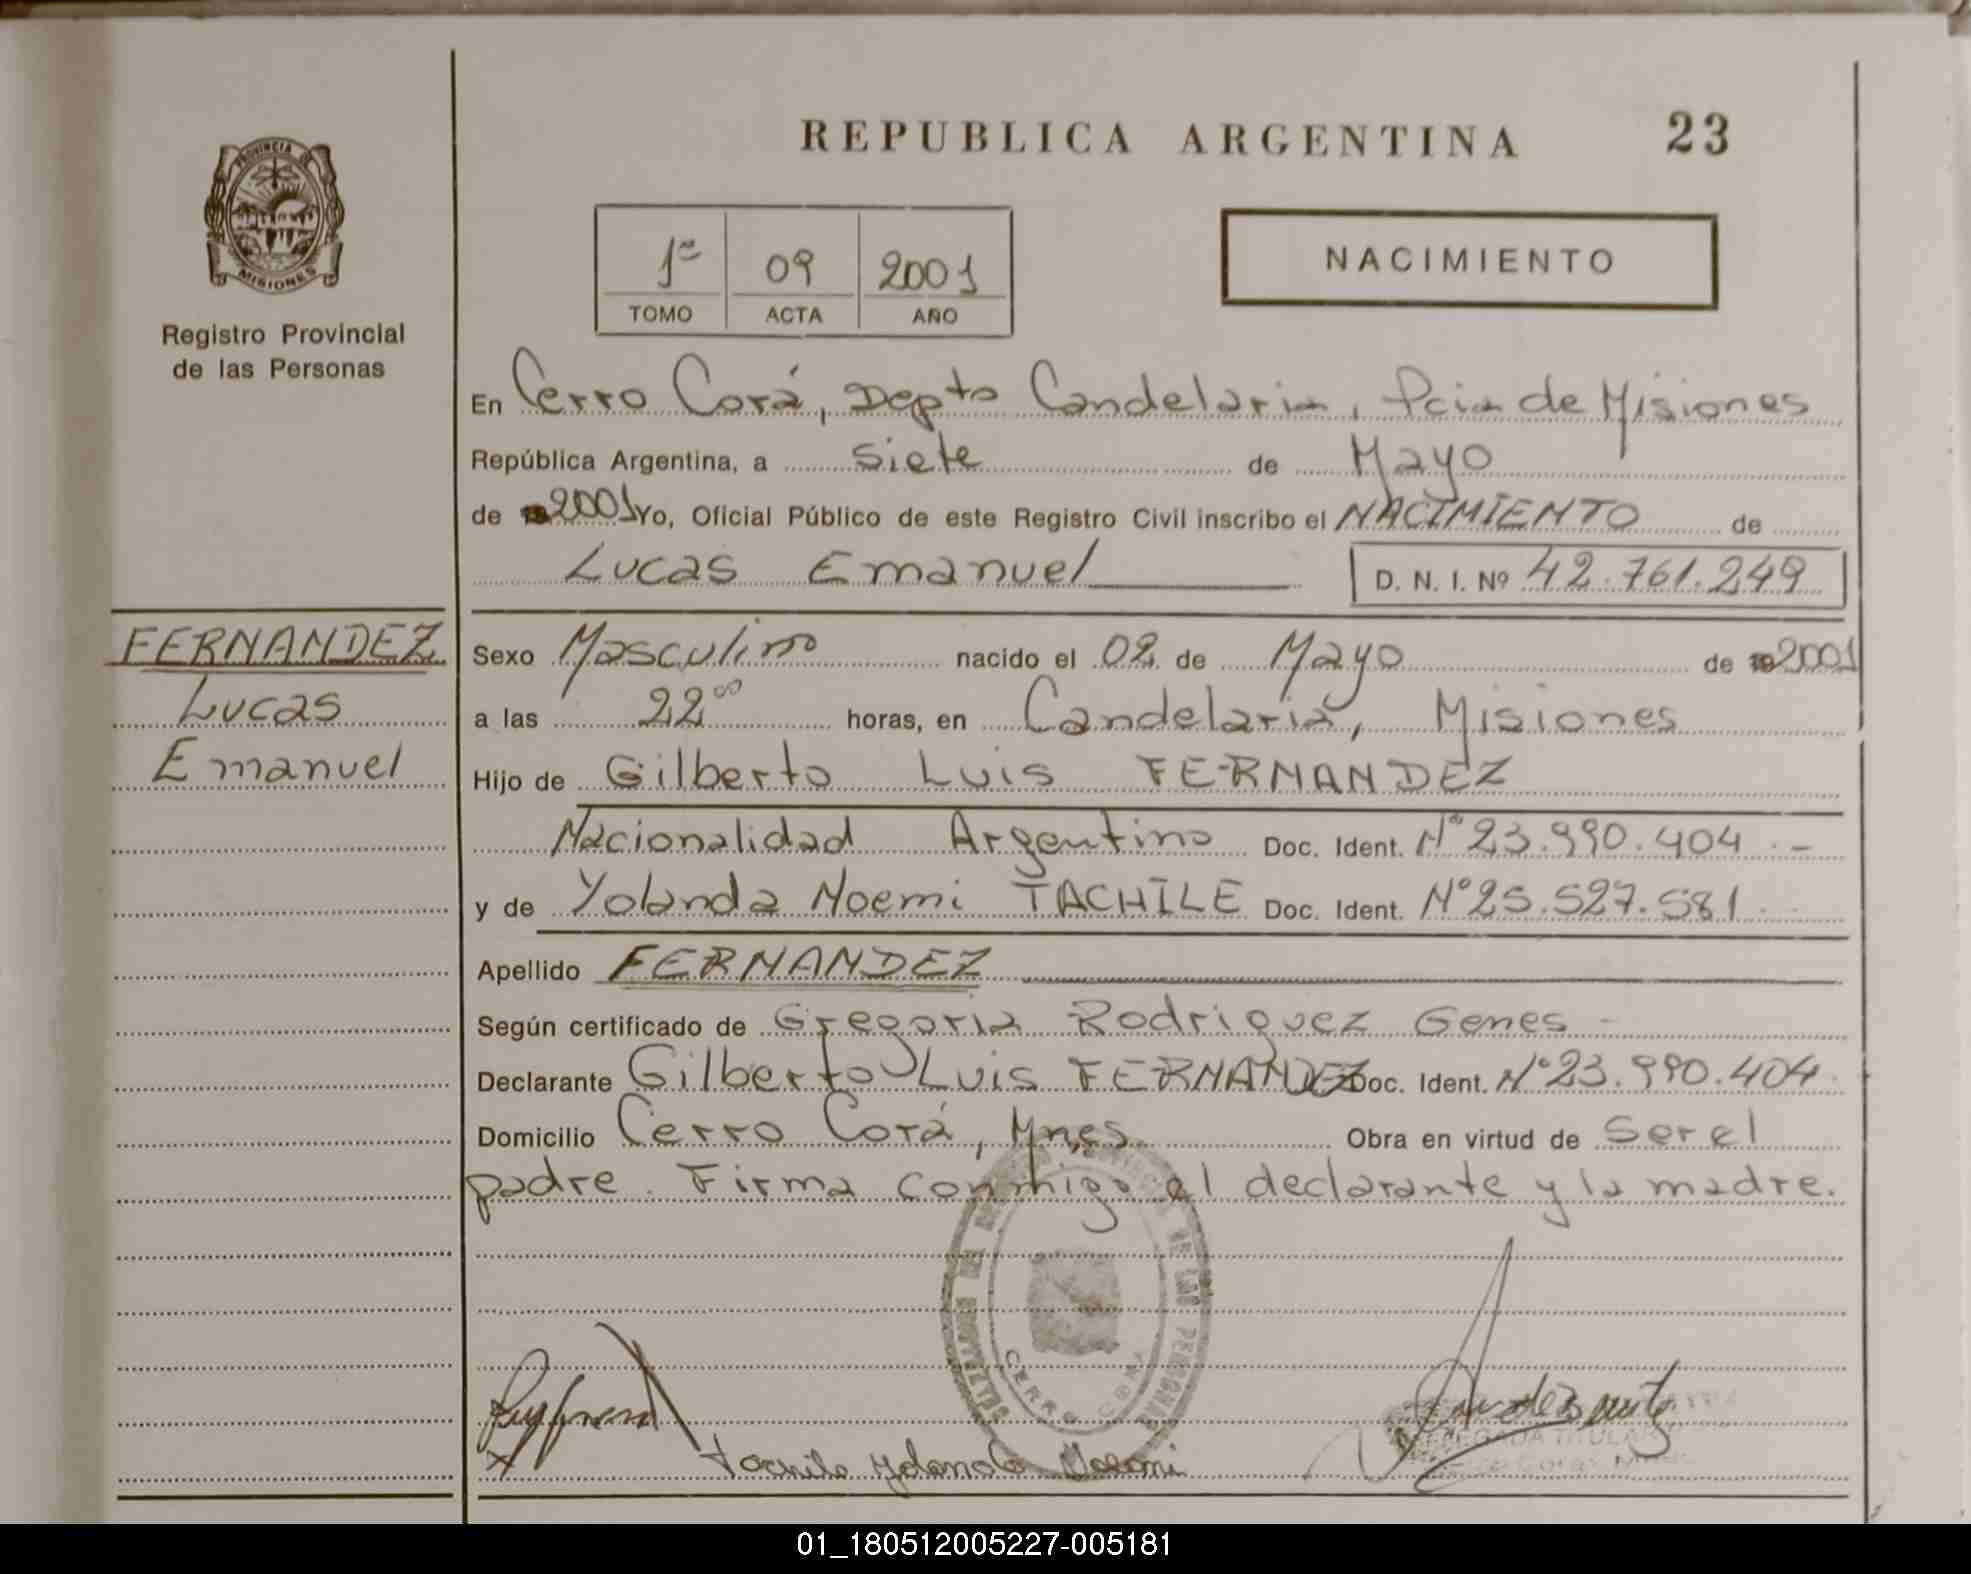 REPUBLICA ARGENTINA 23
PROVINCIA DE
MISIONES
Registro Provincial
de las Personas
1º 09 2001
TOMO ACTA AÑO
NACIMIENTO
En Cerro Corá, Depto Candelaria, Pcia de Misiones
República Argentina, a siete de Mayo
de 2001 Yo, Oficial Público de este Registro Civil inscribo el NACIMIENTO de
Lucas Emanuel D. N. I. Nº 42.761.249
FERNANDEZ
Lucas
Emanuel
Sexo Masculino nacido el 02 de Mayo de 2001
a las 22⁰⁰ horas, en Candelaria, Misiones
Hijo de Gilberto Luis FERNANDEZ
Nacionalidad Argentino Doc. Ident. Nº 23.990.404.-
y de Yolanda Noemi TACHILE Doc. Ident. Nº 25.527.581
Apellido FERNANDEZ
Según certificado de Gregoria Rodriguez Genes -
Declarante Gilberto Luis FERNANDEZ Doc. Ident. Nº 23.990.404.
Domicilio Cerro Corá, Mnes Obra en virtud de ser el
padre. Firma conmigo el declarante y la madre.
DE LAS PERSONAS
CERRO CORA
Tachile Yolanda Noemi
DELEGADA TITULAR
01_180512005227-005181